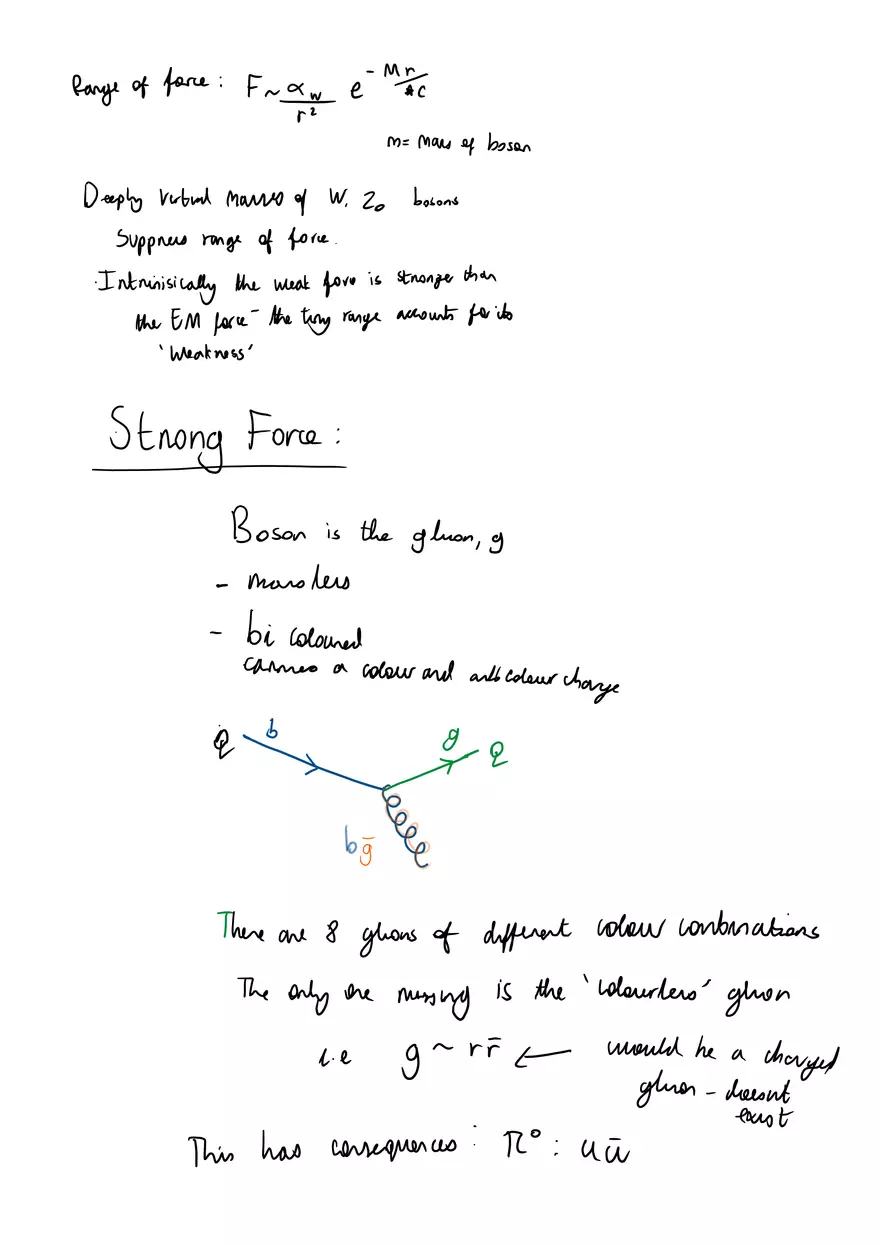 Range of force : F ~ α_w / r² e^(-Mr/ħc)
m = mass of boson
Deeply virtual masses of W, Z₀ bosons
Suppress range of force.
· Intrinisically the weak force is stronger than
the EM force - the tiny range accounts for its
'weakness'
Strong Force :
Boson is the gluon, g
- massless
- bi coloured
carries a colour and anti colour charge
Q b g Q
b ḡ
There are 8 gluons of different colour combinations
The only one missing is the 'colourless' gluon
i.e g ~ r r̄ ← would be a charged
gluon - doesnt
exist
This has consequences : π⁰ : u ū